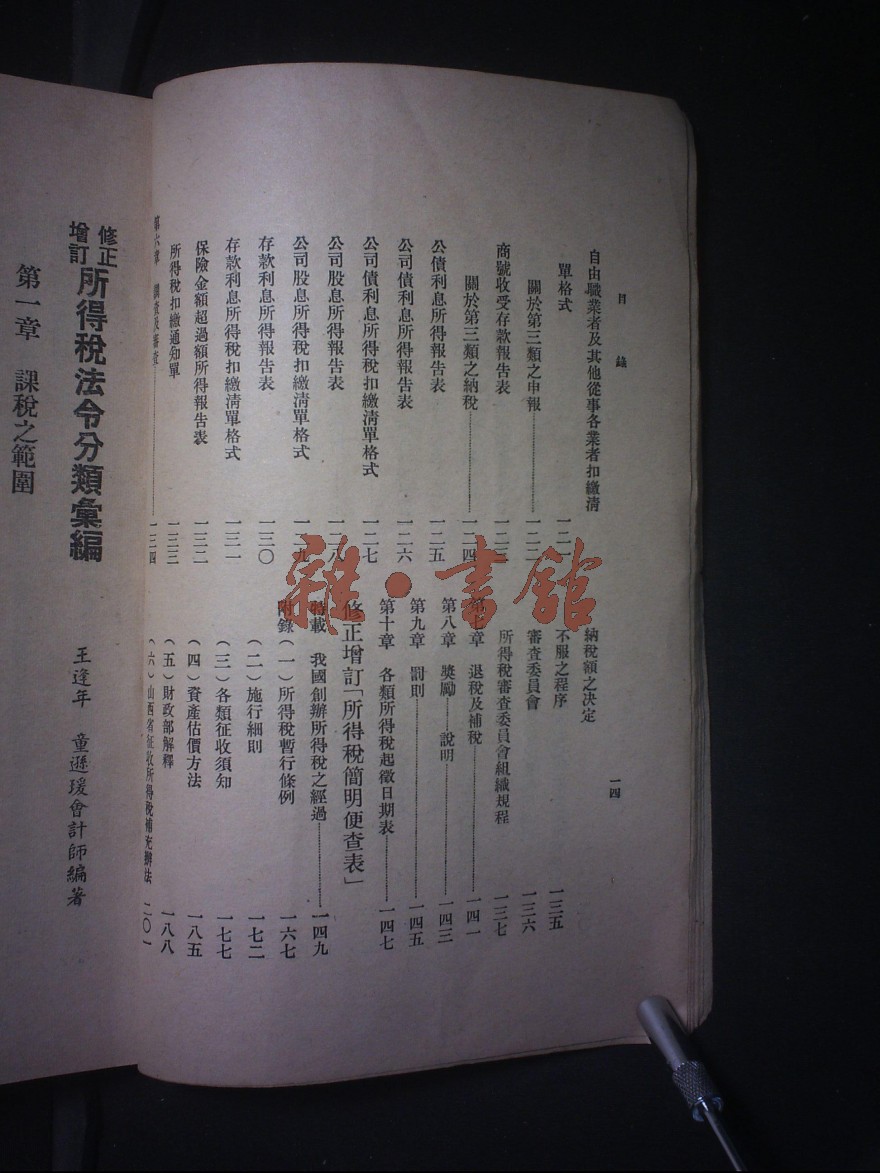 目錄
自由職業者及其他從事各業者扣繳清
單格式 一二一
關於第三類之申報 一二二
商號收受存款報告表 一二三
關於第三類之納稅 一二四
公債利息所得報告表 一二五
公司債利息所得報告表 一二六
公司債利息所得稅扣繳清單格式 一二七
公司股息所得報告表 一二八
公司股息所得稅扣繳清單格式 一二九
存款利息所得報告表 一三〇
存款利息所得稅扣繳清單格式 一三一
保險金額超過額所得報告表 一三二
所得稅扣繳通知單 一三三
第六章 調查及審查 一三四
一四
納稅額之決定
不服之程序 一三五
審查委員會 一三六
所得稅審查委員會組織規程 一三七
第七章 退稅及補稅 一四一
第八章 獎勵——說明 一四三
第九章 罰則 一四五
第十章 各類所得稅起徵日期表 一四七
修正增訂「所得稅簡明便查表」
特載 我國創辦所得稅之經過 一四九
附錄（一）所得稅暫行條例 一六七
（二）施行細則 一七二
（三）各類征收須知 一七七
（四）資產估價方法 一八五
（五）財政部解釋 一八八
（六）山西省征收所得稅補充辦法 二〇一
修正增訂所得稅法令分類彙編
王逢年 童遜瑗會計師編著
第一章 課稅之範圍
雜·書館